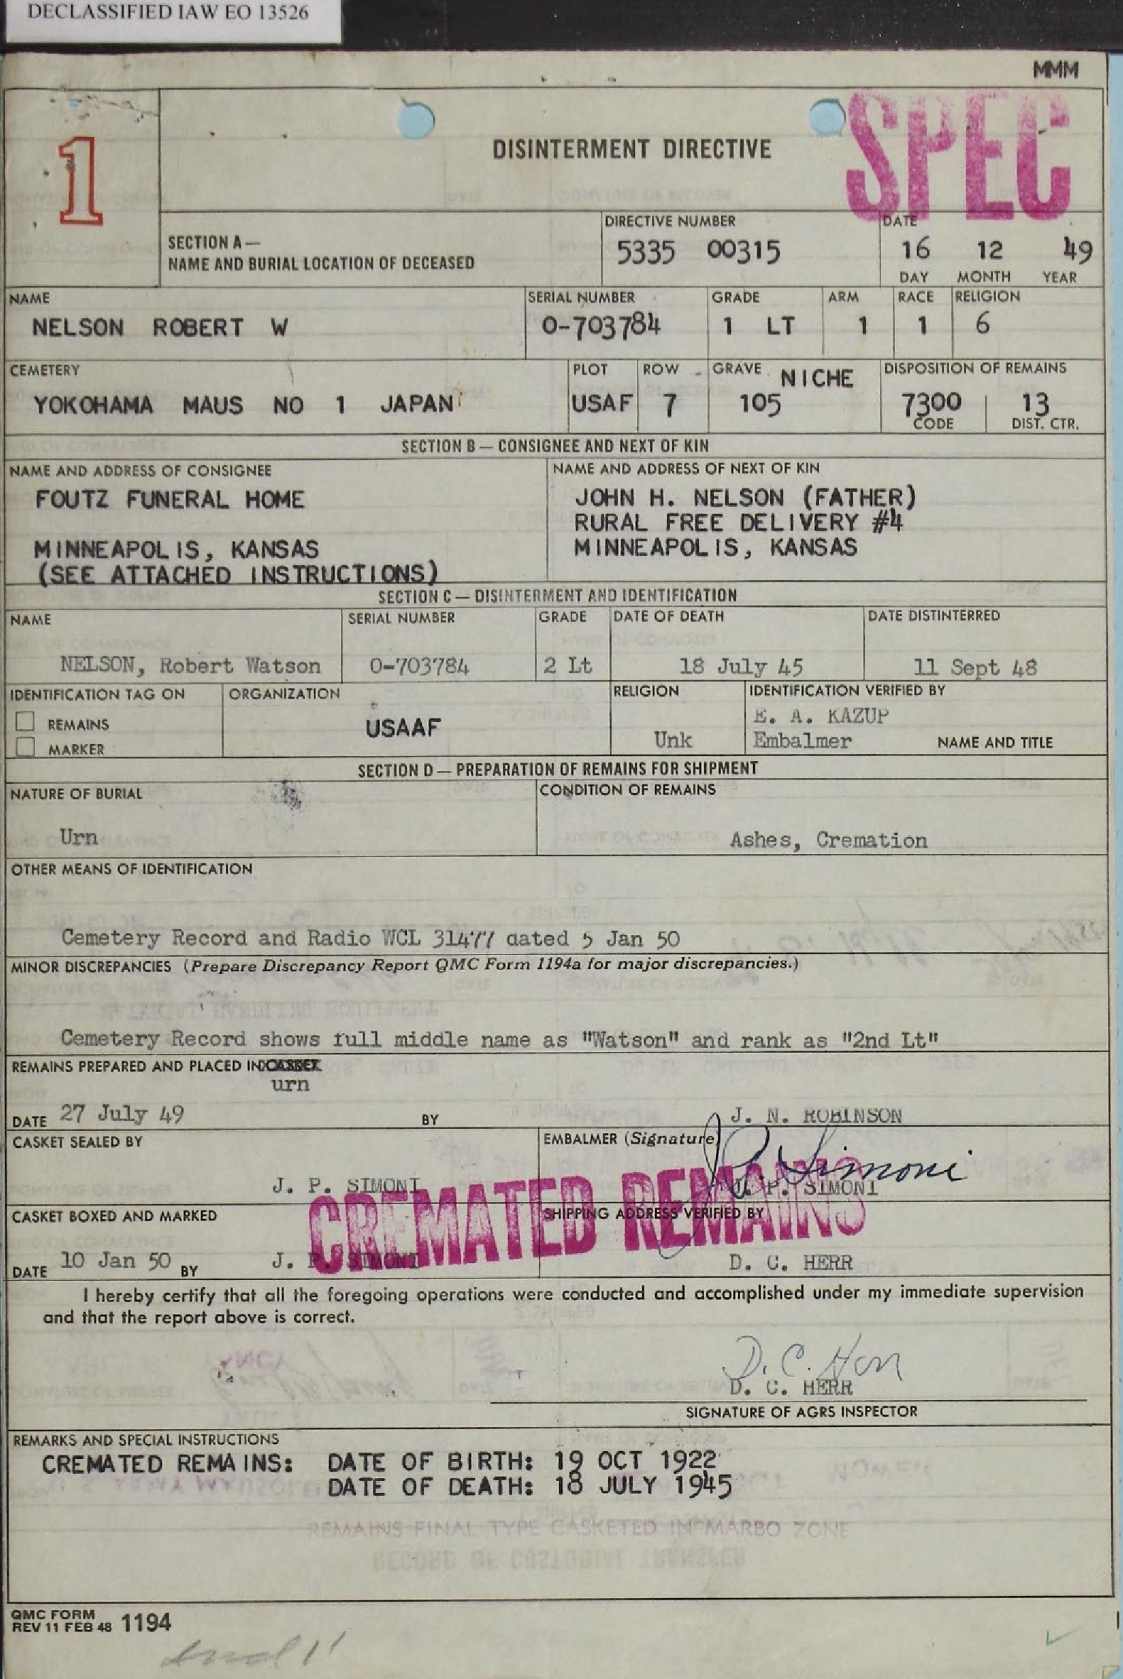 DECLASSIFIED IAW EO 13526
MMM
1
DISINTERMENT DIRECTIVE
SPEC
SECTION A—
NAME AND BURIAL LOCATION OF DECEASED
DIRECTIVE NUMBER
5335 00315
DATE
16 12 49
DAY MONTH YEAR
NAME
NELSON ROBERT W
SERIAL NUMBER
O-703784
GRADE
1 LT
ARM
1
RACE
1
RELIGION
6
CEMETERY
YOKOHAMA MAUS NO 1 JAPAN
PLOT
USAF
ROW
7
GRAVE NICHE
105
DISPOSITION OF REMAINS
7300 13
CODE DIST. CTR.
SECTION B — CONSIGNEE AND NEXT OF KIN
NAME AND ADDRESS OF CONSIGNEE
FOUTZ FUNERAL HOME
MINNEAPOLIS, KANSAS
(SEE ATTACHED INSTRUCTIONS)
NAME AND ADDRESS OF NEXT OF KIN
JOHN H. NELSON (FATHER)
RURAL FREE DELIVERY #4
MINNEAPOLIS, KANSAS
SECTION C — DISINTERMENT AND IDENTIFICATION
NAME
NELSON, Robert Watson
SERIAL NUMBER
O-703784
GRADE
2 Lt
DATE OF DEATH
18 July 45
DATE DISTINTERRED
11 Sept 48
IDENTIFICATION TAG ON
REMAINS
MARKER
ORGANIZATION
USAAF
RELIGION
Unk
IDENTIFICATION VERIFIED BY
E. A. KAZUP
Embalmer NAME AND TITLE
SECTION D — PREPARATION OF REMAINS FOR SHIPMENT
NATURE OF BURIAL
Urn
CONDITION OF REMAINS
Ashes, Cremation
OTHER MEANS OF IDENTIFICATION
Cemetery Record and Radio WCL 31477 dated 5 Jan 50
MINOR DISCREPANCIES (Prepare Discrepancy Report QMC Form 1194a for major discrepancies.)
Cemetery Record shows full middle name as "Watson" and rank as "2nd Lt"
REMAINS PREPARED AND PLACED IN CASKET
urn
DATE 27 July 49 BY J. N. ROBINSON
CASKET SEALED BY
J. P. SIMONI
EMBALMER (Signature)
J P Simoni
J. P. SIMONI
CREMATED REMAINS
CASKET BOXED AND MARKED
DATE 10 Jan 50 BY J. P. SIMONI
SHIPPING ADDRESS VERIFIED BY
D. C. HERR
I hereby certify that all the foregoing operations were conducted and accomplished under my immediate supervision
and that the report above is correct.
D. C. Herr
D. C. HERR
SIGNATURE OF AGRS INSPECTOR
REMARKS AND SPECIAL INSTRUCTIONS
CREMATED REMAINS: DATE OF BIRTH: 19 OCT 1922
DATE OF DEATH: 18 JULY 1945
REMAINS FINAL TYPE CASKETED IN MARBO ZONE
QMC FORM
REV 11 FEB 48 1194